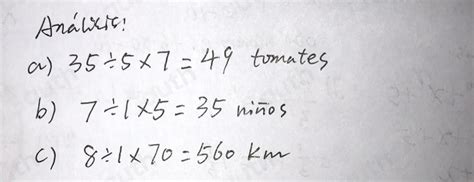 Análisis:
a) 35÷5×7=49 tomates
b) 7÷1×5=35 niños
c) 8÷1×70=560 km